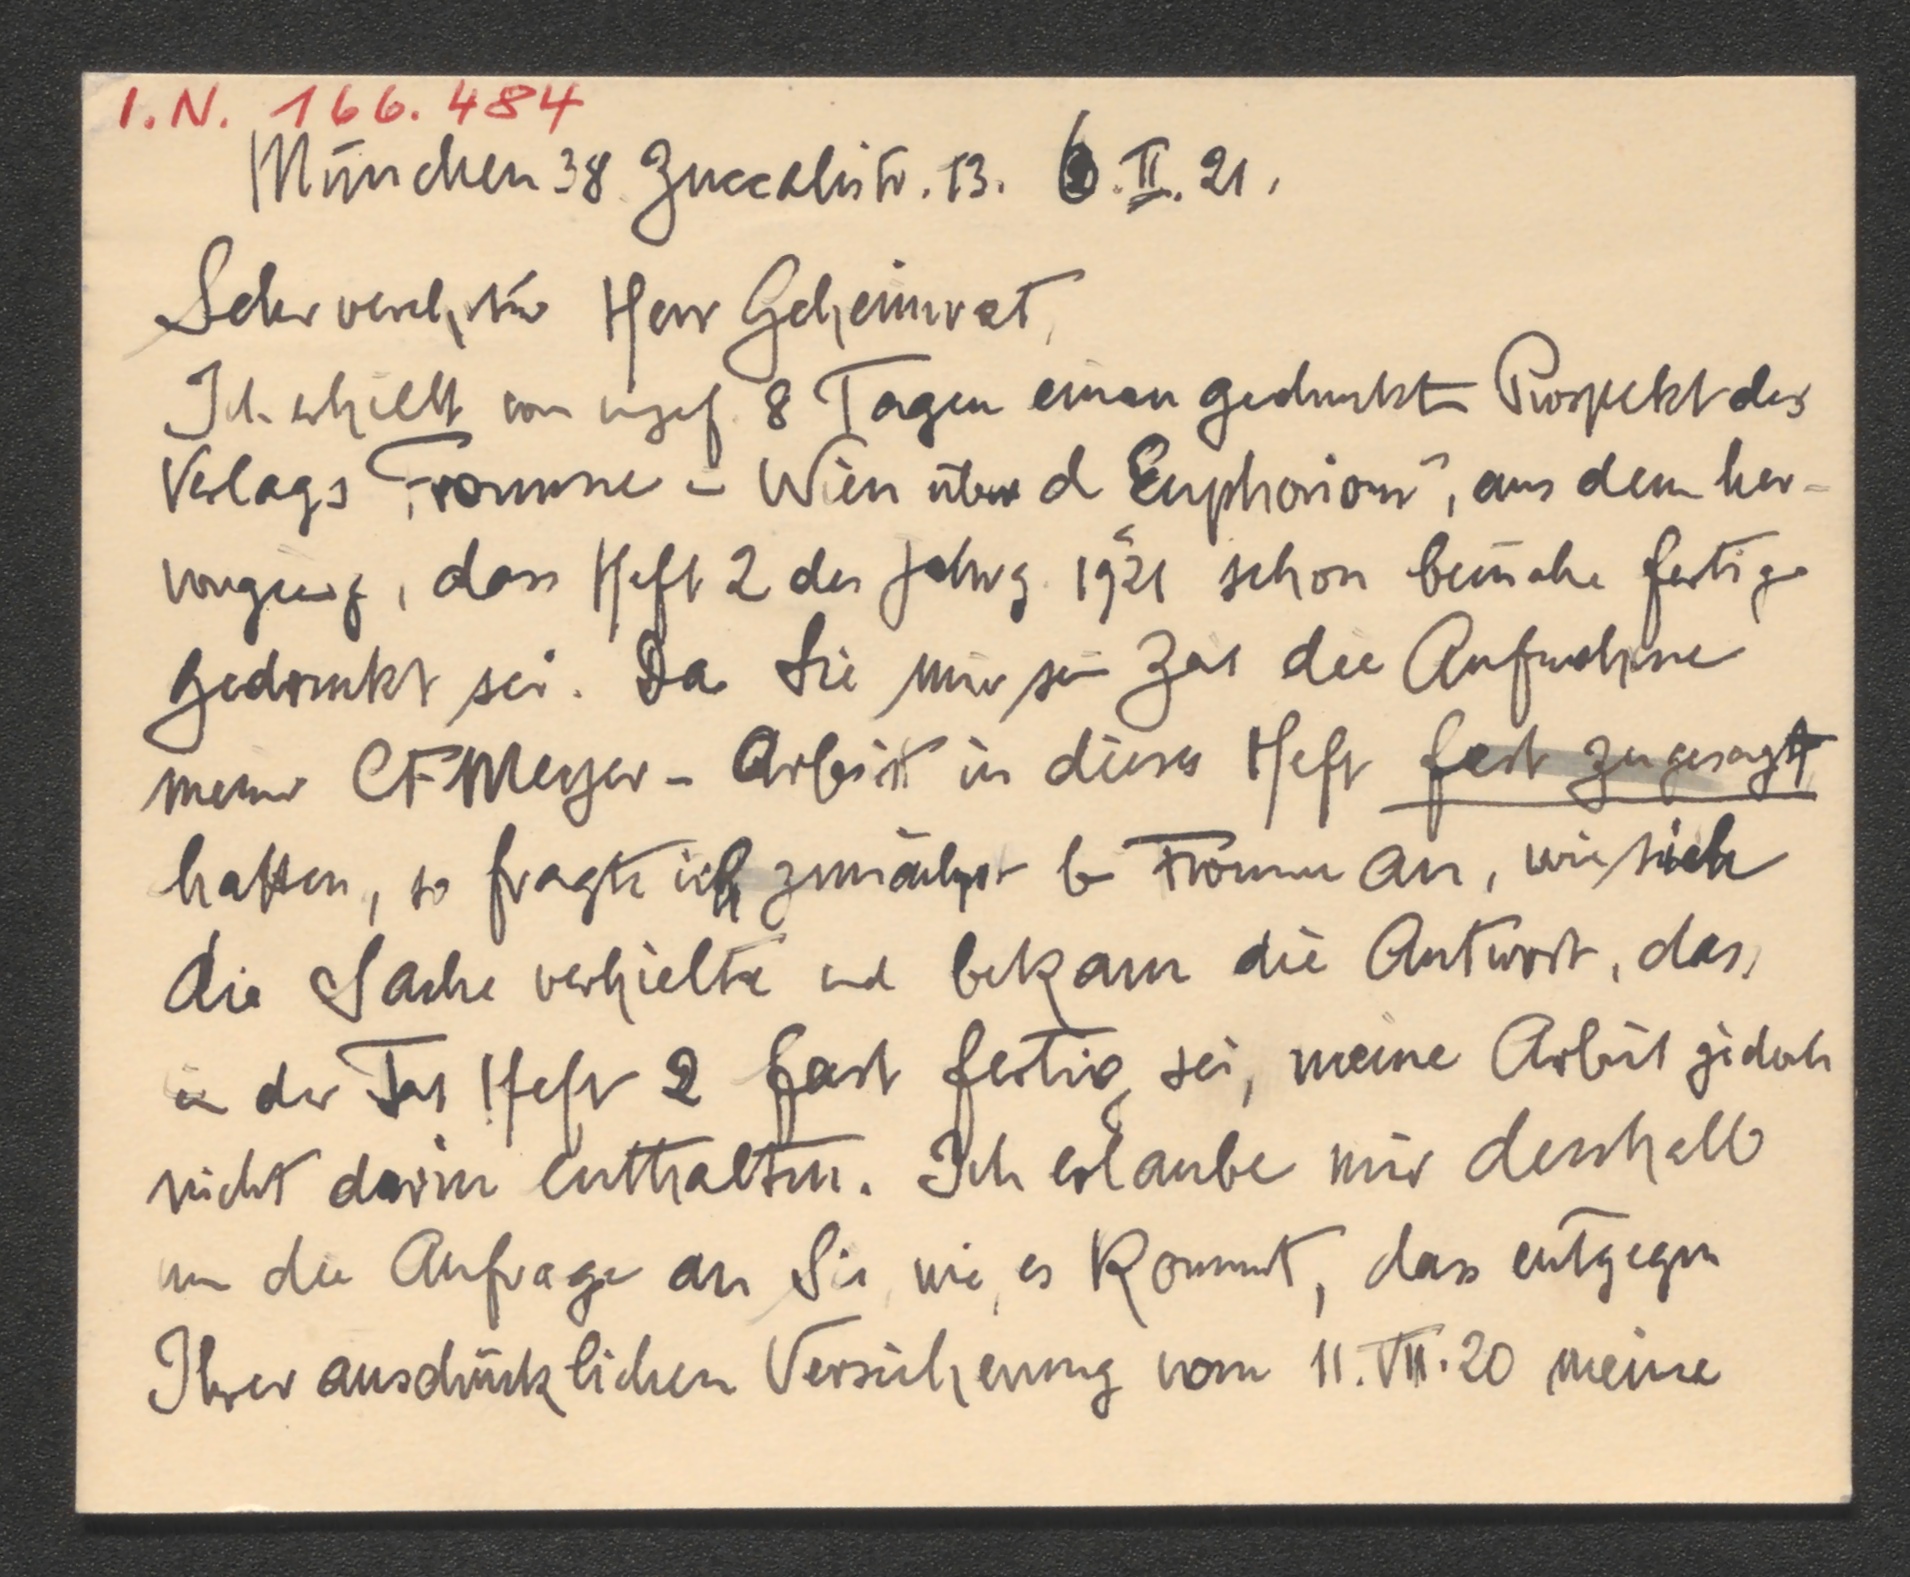 I.N. 166.484
München 38 Zuccalistr. 13. 6. II. 21.
Sehr verehrter Herr Geheimrat,
Ich erhielt vor ungef. 8 Tagen einen gedruckten Prospekt des
Verlags Fromme - Wien über d "Euphorion", aus dem her-
vorging, dass Heft 2 des Jahrg. 1921 schon beinahe fertig
gedruckt sei. Da Sie mir sein Zeit die Aufnahme
meiner CFMeyer - Arbeit in dieses Heft fest zugesagt
hatten, so fragte ich zunächst b Fromme an, wie sich
die Sache verhielte und bekam die Antwort, dass
in der Tat Heft 2 fast fertig sei, meine Arbeit jedoch
nicht darin enthalten. Ich erlaube mir desshalb
nun die Anfrage an Sie, wie es kommt, dass entgegen
Ihrer ausdrücklichen Versicherung vom 11. VII. 20 meine